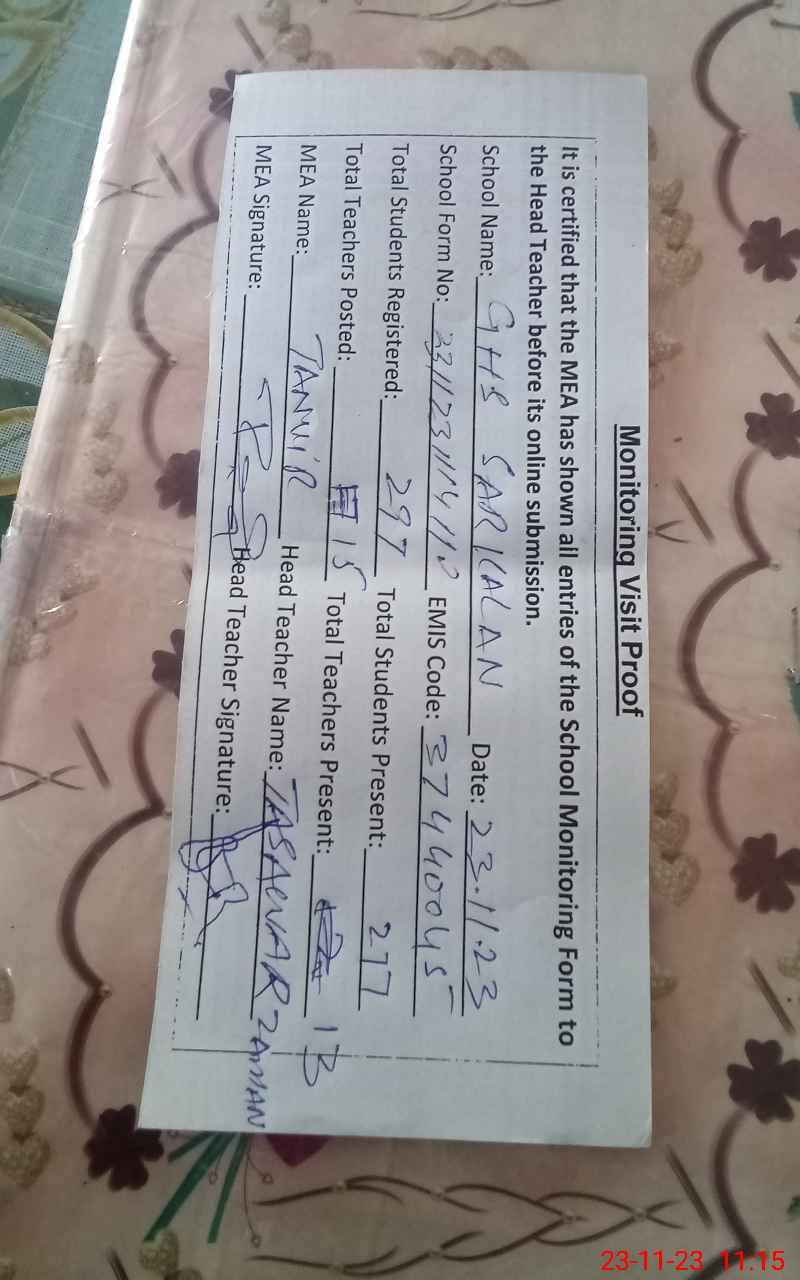 Monitoring Visit Proof
It is certified that the MEA has shown all entries of the School Monitoring Form to
the Head Teacher before its online submission.
School Name: GHS SARKALAN Date: 23.11.23
School Form No: EMIS Code: 37440045
Total Students Registered: 297 Total Students Present: 277
Total Teachers Posted: 15 Total Teachers Present: 13
MEA Name: TANVIR Head Teacher Name: TASAWAR ZAMAN
MEA Signature: Head Teacher Signature:
23-11-23 11:15